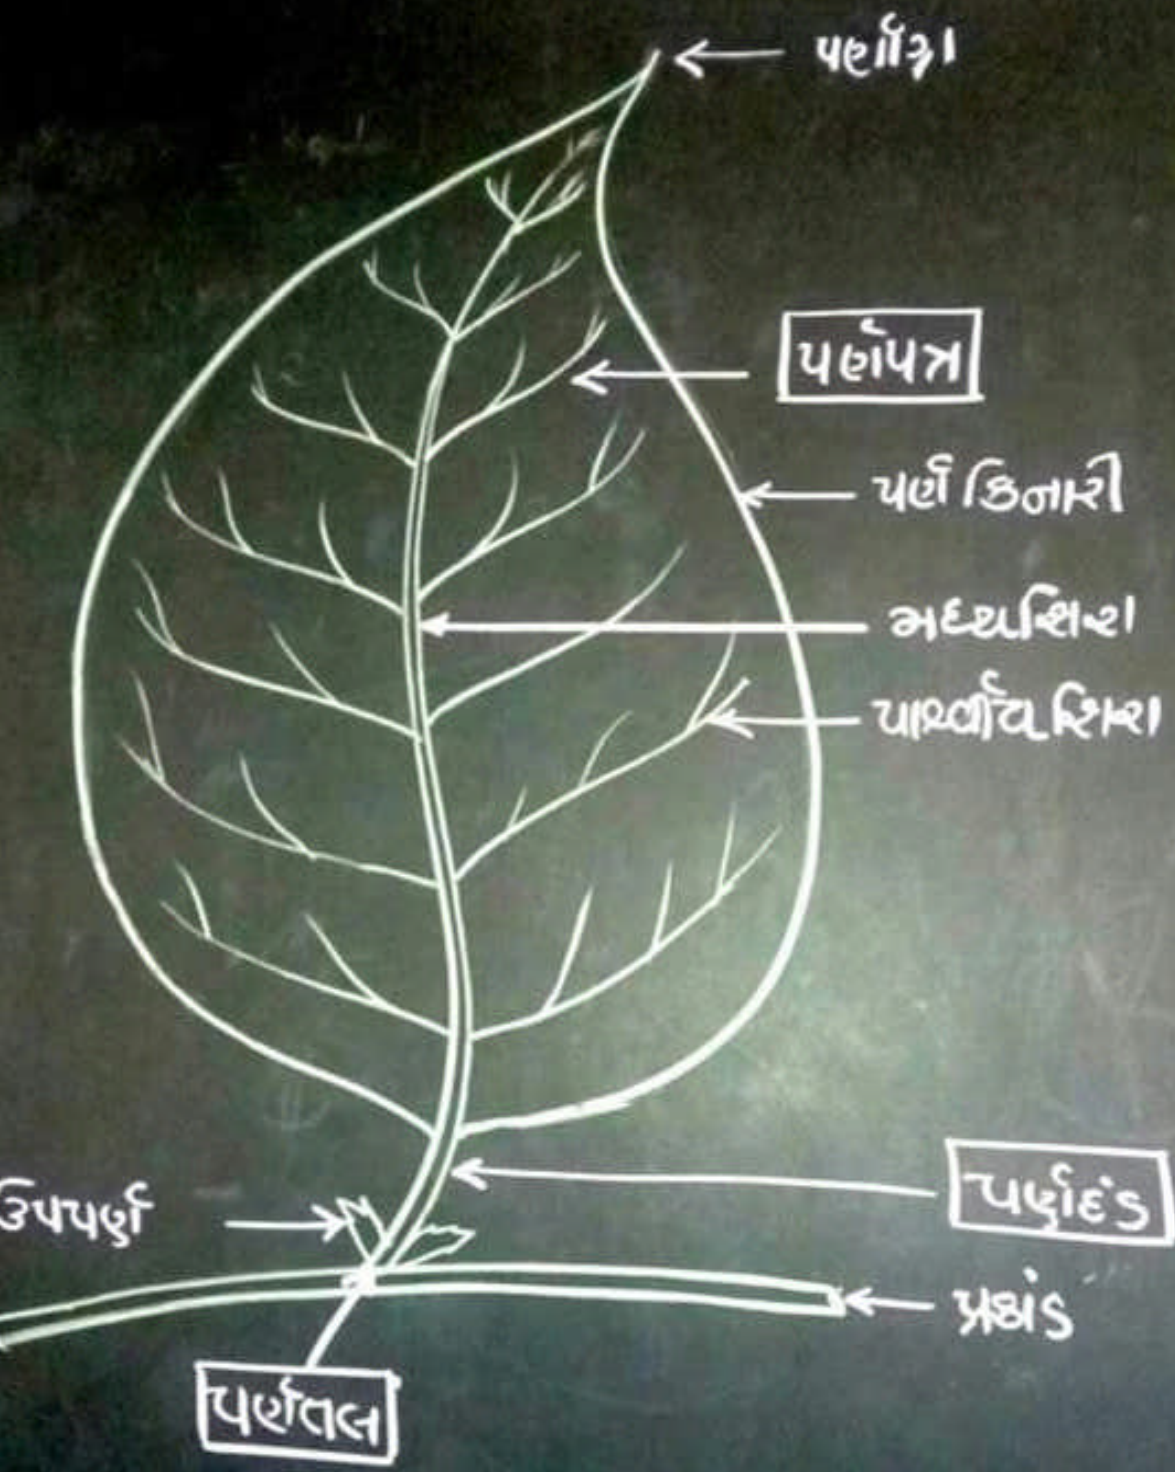 પર્ણાગ્ર
પર્ણપત્ર
પર્ણ કિનારી
મધ્યશિરા
પાર્શ્વીય શિરા
પર્ણદંડ
ઉપપર્ણ
પ્રકાંડ
પર્ણતલ